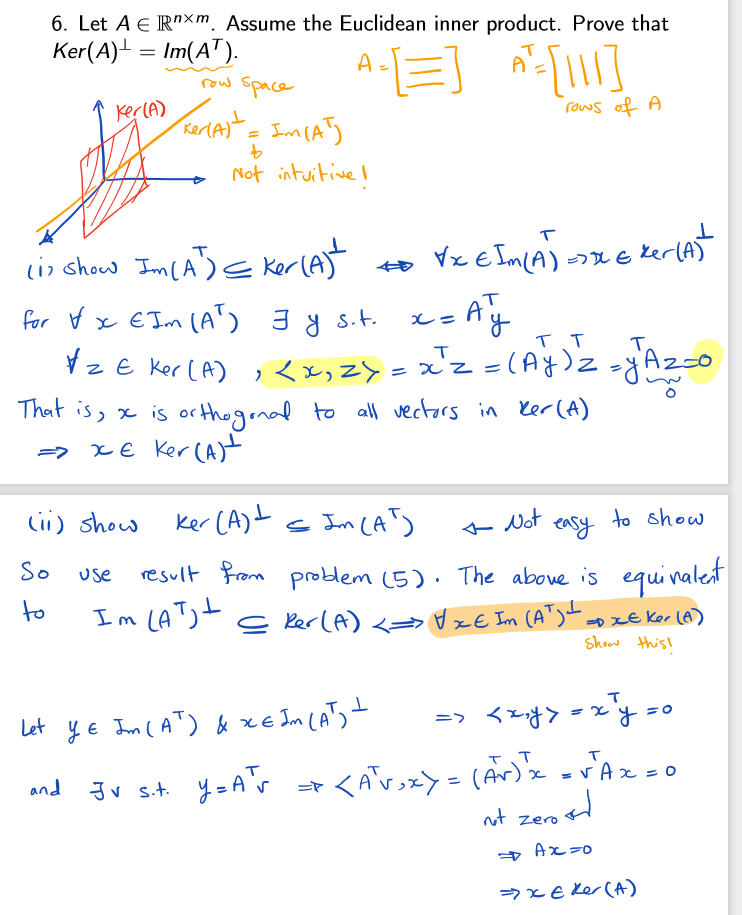 6. Let A ∈ ℝⁿˣᵐ. Assume the Euclidean inner product. Prove that
Ker(A)^⊥ = Im(Aᵀ).
row space
A = [≡] Aᵀ = [|||]
rows of A
Ker(A)
Ker(A)^⊥ = Im(Aᵀ)
Not intuitive!
(i) show Im(Aᵀ) ⊆ Ker(A)^⊥ ⇔ ∀x ∈ Im(Aᵀ) ⇒ x ∈ Ker(A)^⊥
for ∀ x ∈ Im(Aᵀ) ∃ y s.t. x = Aᵀy
∀ z ∈ Ker(A) , <x, z> = xᵀz = (Aᵀy)ᵀz = yᵀAz = 0
0
That is, x is orthogonal to all vectors in Ker(A)
⇒ x ∈ Ker(A)^⊥
(ii) show Ker(A)^⊥ ⊆ Im(Aᵀ) ← Not easy to show
So use result from problem (5). The above is equivalent
to Im(Aᵀ)^⊥ ⊆ Ker(A) ⇔ ∀x ∈ Im(Aᵀ)^⊥ ⇒ x ∈ Ker(A)
Show this!
Let y ∈ Im(Aᵀ) & x ∈ Im(Aᵀ)^⊥ ⇒ <x,y> = xᵀy = 0
and ∃v s.t. y = Aᵀv ⇒ <Aᵀv,x> = (Aᵀv)ᵀx = vᵀAx = 0
not zero ↲
⇒ Ax = 0
⇒ x ∈ Ker(A)